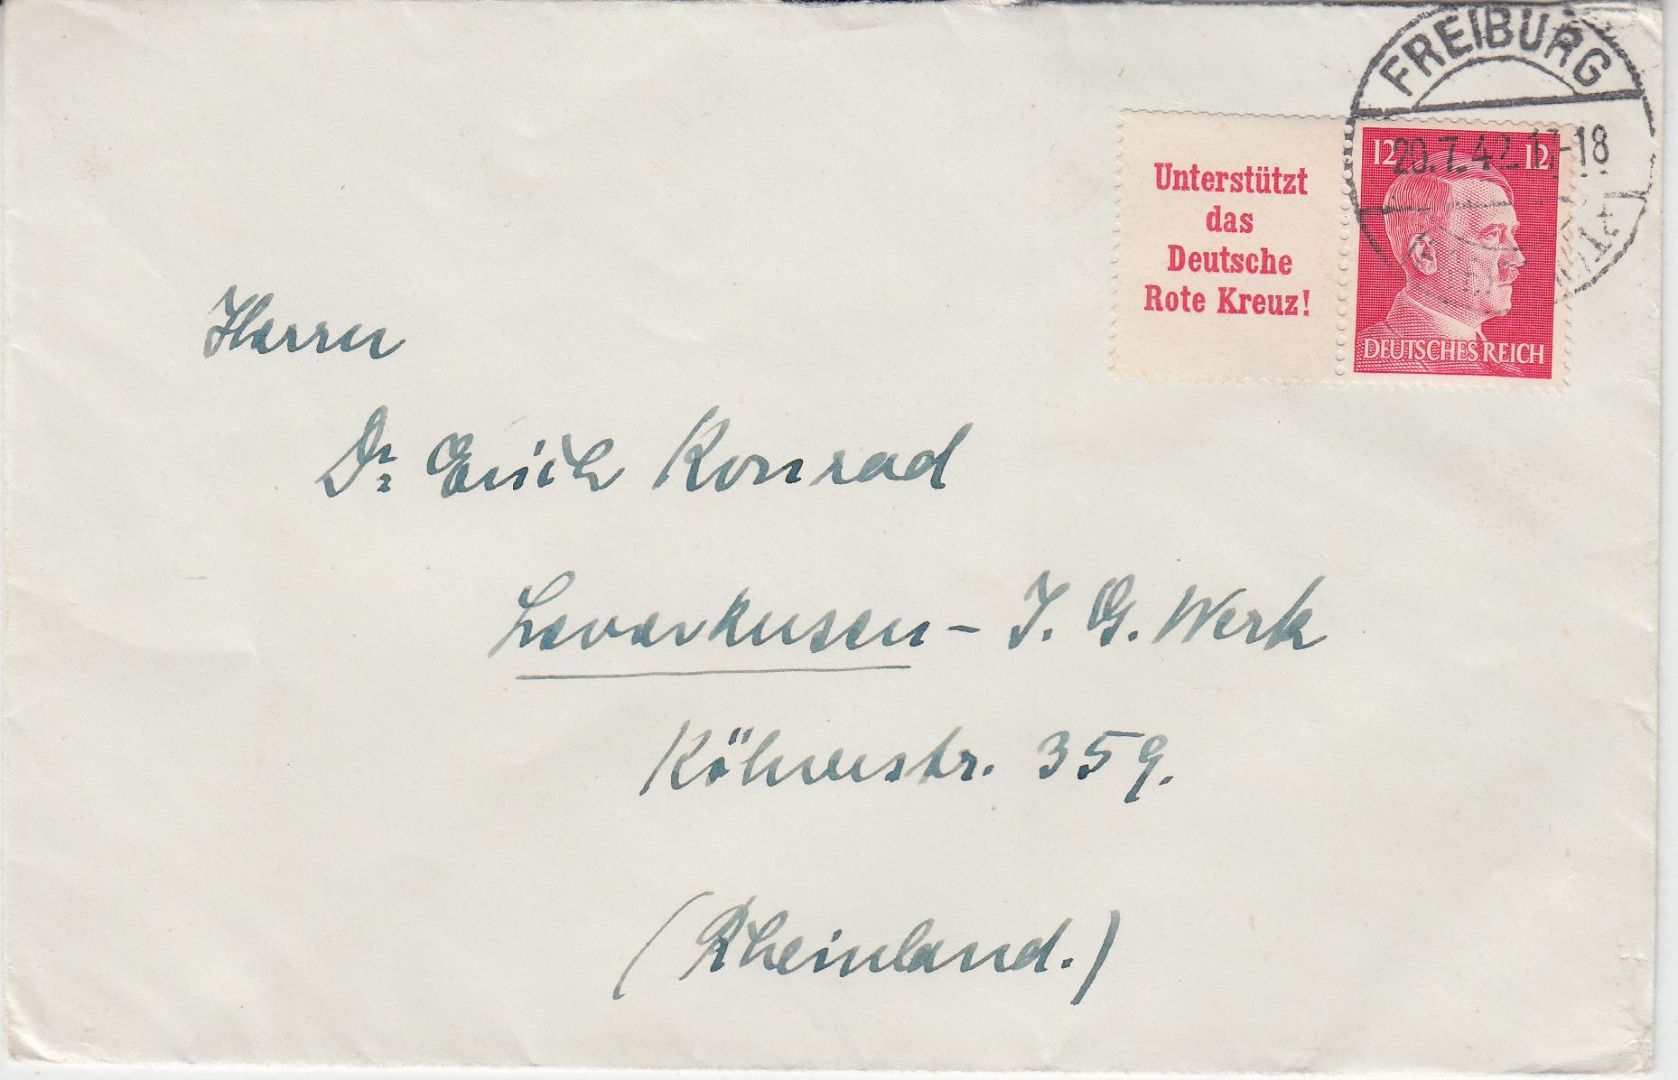 FREIBURG
20.7.42.17-18
Unterstützt
das
Deutsche
Rote Kreuz!
12 12
DEUTSCHES REICH
Herrn
Dr. Erich Konrad
Leverkusen - I. G. Werk
Kölnerstr. 359.
(Rheinland.)